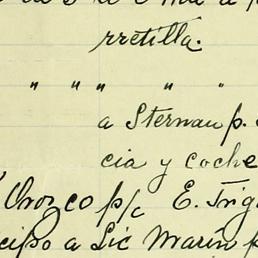 rretilla.
" " " " "
a Sternau p.
cia y coche
Orozco p/c E. Trig
cipo a Lic Marin p